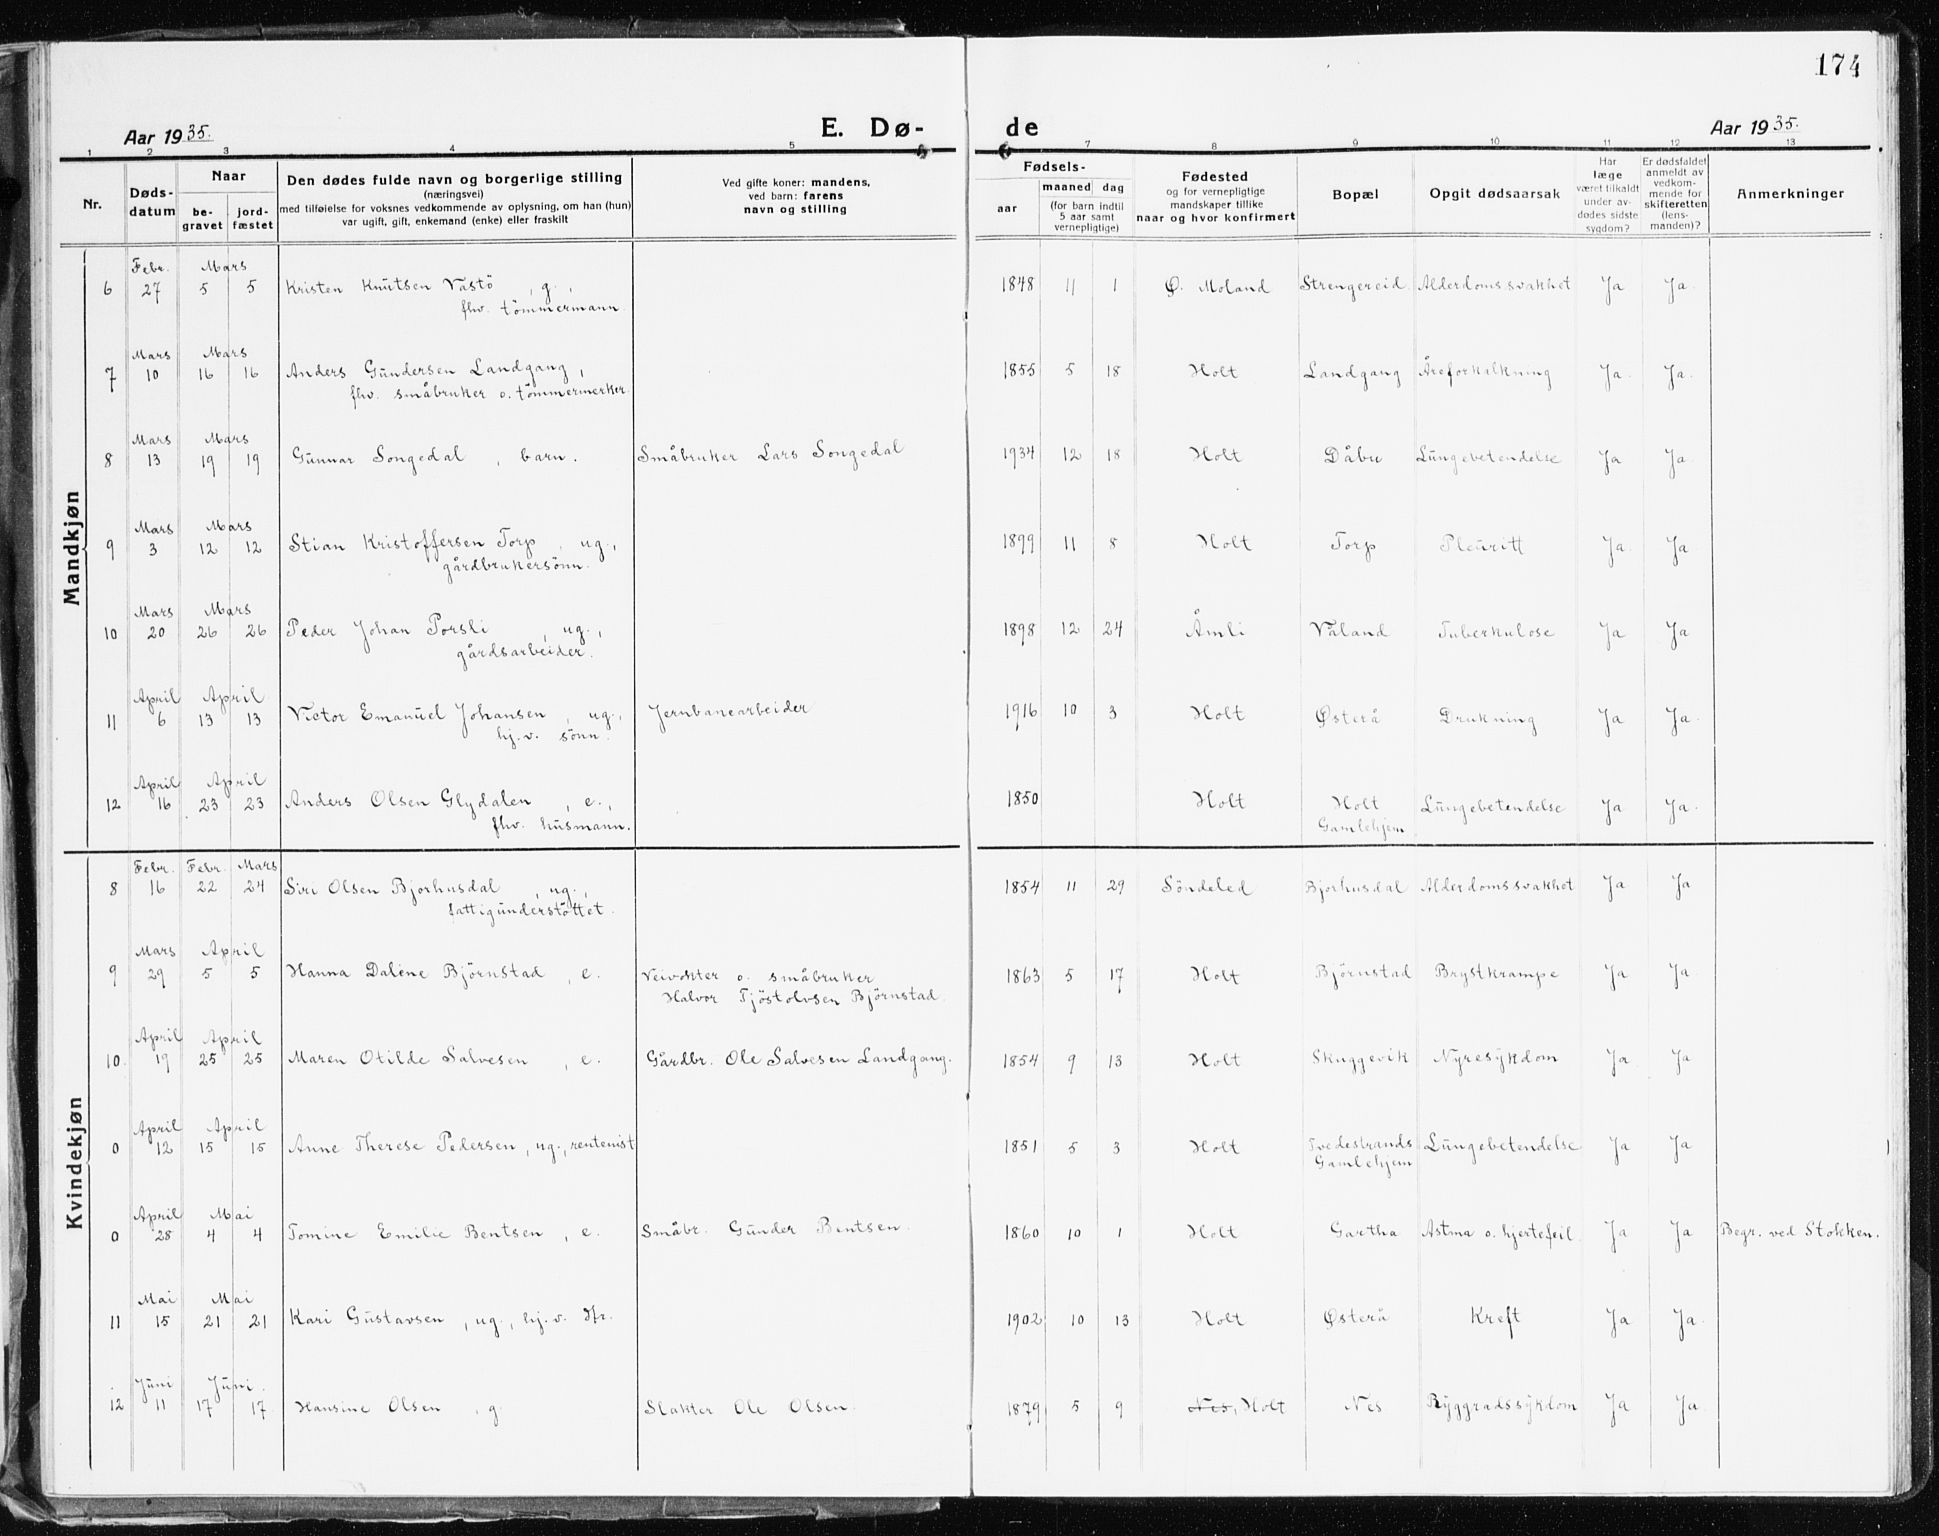 174
Aar 1935. E. Dø- de Aar 1935.
1 2 3 4 5 7 8 9 10 11 12 13
Nr. Døds-datum Naar be-gravet jord-fæstet Den dødes fulde navn og borgerlige stilling (næringsvei) med tilføielse for voksnes vedkommende av oplysning, om han (hun) var ugift, gift, enkemand (enke) eller fraskilt Ved gifte koner: mandens, ved barn: farens navn og stilling Fødsels- aar maaned dag (for barn indtil 5 aar samt vernepligtige) Fødested og for vernepligtige mandskaper tillike naar og hvor konfirmert Bopæl Opgit dødsaarsak Har læge været tilkaldt under av-dødes sidste sygdom? Er dødsfaldet anmeldt av vedkom-mende for skifteretten (lens-manden)? Anmerkninger
Mandkjøn
Febr. Mars
6 27 5 5 Kristen Knutsen Vastö , g., 1848 11 1 Ø. Moland Strengereid. Alderdomssvakhet Ja Ja.
fhv. tömmermann.
Mars Mars
7 10 16 16 Anders Gundersen Landgang, 1855 5 18 Holt Landgang Åreforkalkning Ja. Ja.
fhv. småbruker o. tömmermerker.
Mars Mars
8 13 19 19 Gunnar Songedal , barn. Småbruker Lars Songedal 1934 12 18 Holt Dåbu Lungebetendelse Ja Ja.
Mars Mars
9 3 12 12 Stian Kristoffersen Torp , ug., 1899 11 8 Holt Torp Pleuritt Ja. Ja.
gårdbrukersönn.
Mars Mars
10 20 26 26 Peder Johan Porsli , ug., 1898 12 24 Åmli Våland Tuberkulose Ja Ja
gårdsarbeider.
April April
11 6 13 13 Victor Emanuel Johansen , ug., Jernbanearbeider 1916 10 3 Holt Østerå Drukning Ja Ja.
hj.v. sönn.
April April
12 16 23 23 Anders Olsen Glydalen , e., 1850 Holt Holt Lungebetendelse Ja Ja.
fhv. husmann. Gamlehjem
Kvindekjøn
Febr. Febr. Mars
8 16 22 24 Siri Olsen Bjorhusdal , ug., 1854 11 29 Söndeled Bjorhusdal Alderdomssvakhet Ja Ja
fattigunderstöttet.
Mars April
9 29 5 5 Hanna Daléne Björnstad , e. Veivokter o. småbruker 1863 5 17 Holt Björnstad Brystkrampe Ja Ja.
Halvor Tjöstolvsen Björnstad.
April April
10 19 25 25 Maren Otilde Salvesen , e. Gårdbr. Ole Salvesen Landgang. 1854 9 13 Holt Skuggevik Nyresykdom Ja Ja
April April
0 12 15 15 Anne Therese Pedersen, ug., rentenist 1851 5 3 Holt Tvedestrands Lungebetendelse Ja Ja
Gamlehjem
April Mai
0 28 4 4 Tomine Emilie Bentsen , e. Småbr. Gunder Bentsen. 1860 10 1 Holt Gartha Astma o. hjertefeil. Ja Ja Begr. ved Stokken.
Mai Mai
11 15 21 21 Kari Gustavsen , ug., hj.v. dtr. 1902 10 13 Holt Østerå Kreft Ja Ja.
Juni Juni.
12 11 17 17. Hansine Olsen , g. Slakter Ole Olsen. 1879 5 9 Nes, Holt Nes Ryggradssykdom Ja Ja.